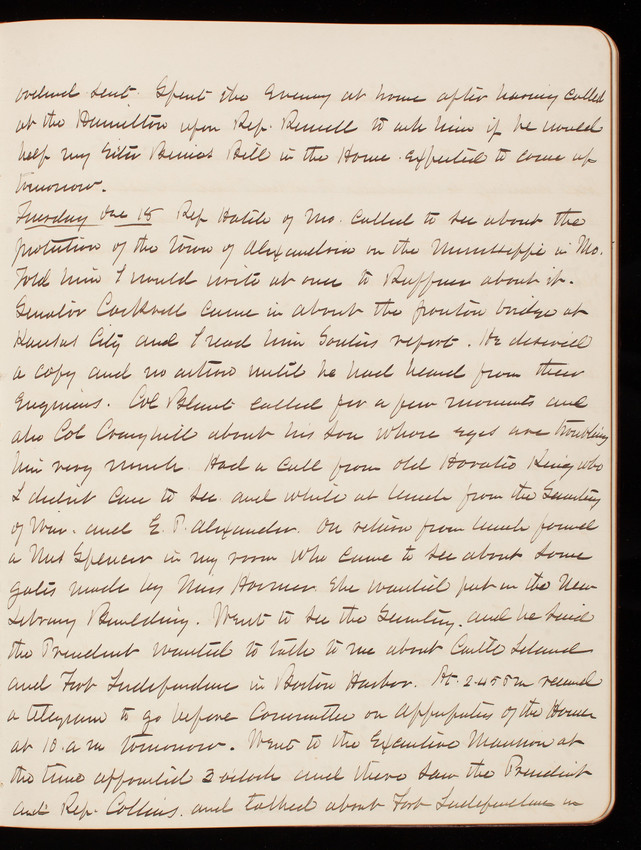 ordered sent. Spent the Evening at home after having called
at the Hamilton upon Rep. to ask him if he would
help my Bill in the House. expected to come up
tomorrow.
Tuesday Dec 18 Rep Hatch of Mo. called to see about the
protection of the town of Alexandria on the Mississippi in Mo.
Told him I would write at once to Ruffner about it.
Senator Cockrell came in about the ponton bridge at
Kansas City and I read him report. He desired
a copy and no action until he had heard from their
Engineers. Col Blunt called for a few moments and
also Col Craighill about his son whose eyes are troubling
him very much. Had a call from old Horatio King who
I didnt care to see. and while at lunch from the Secretary
of War. and E. P. Alexander. On return from lunch found
a Mrs Spencer in my room who came to see about some
gates made by Miss Hosmer. She wanted put in the New
Library Building. Went to see the Secretary. and he said
the President wanted to talk to me about Castle Island
and Fort Independence in Boston Harbor. At 2.45 P.M. received
a telegram to go before Committee on Appropriations of the House
at 10 a m tomorrow. Went to the Executive Mansion at
the time appointed 3 oclock and there saw the President
and Rep. Collins. and talked about Fort Independence in